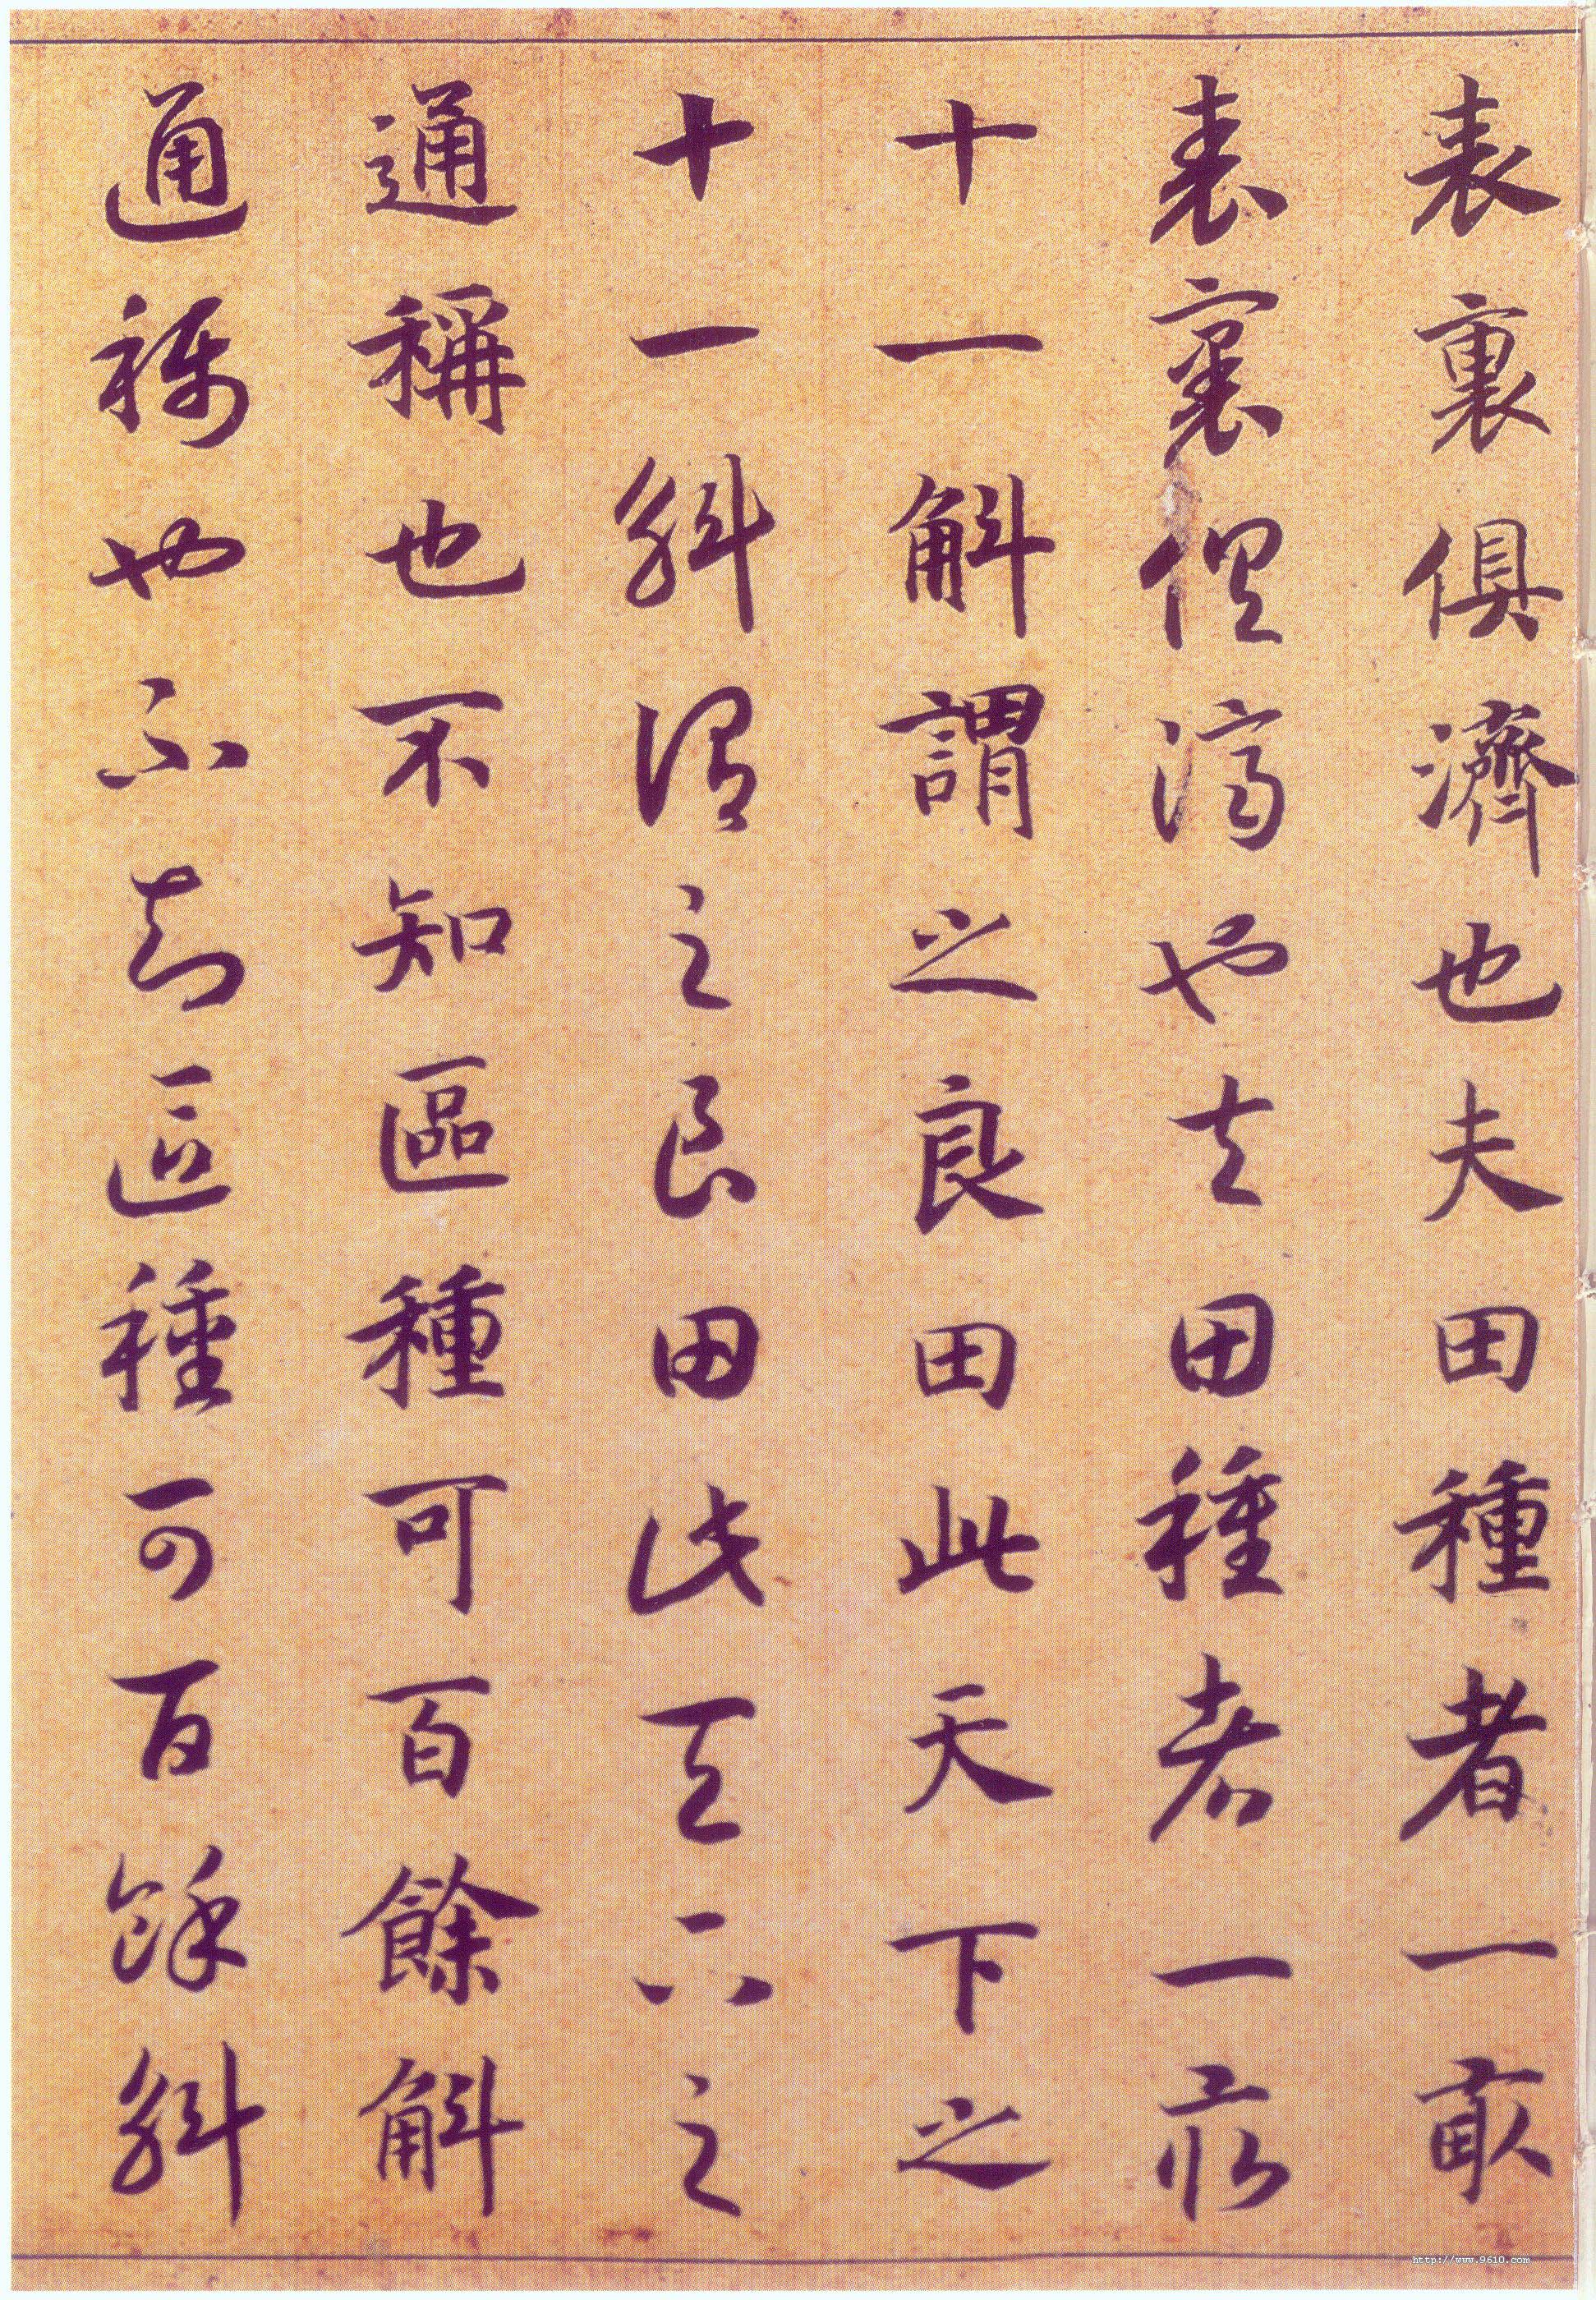 表裏俱濟也夫田種者一畝
表裏俱濟也夫田種者一畝
十一斛謂之良田此天下之
十一斛謂之良田此天下之
通稱也不知區種可百餘斛
通稱也不知區種可百餘斛
http://www.9610.com